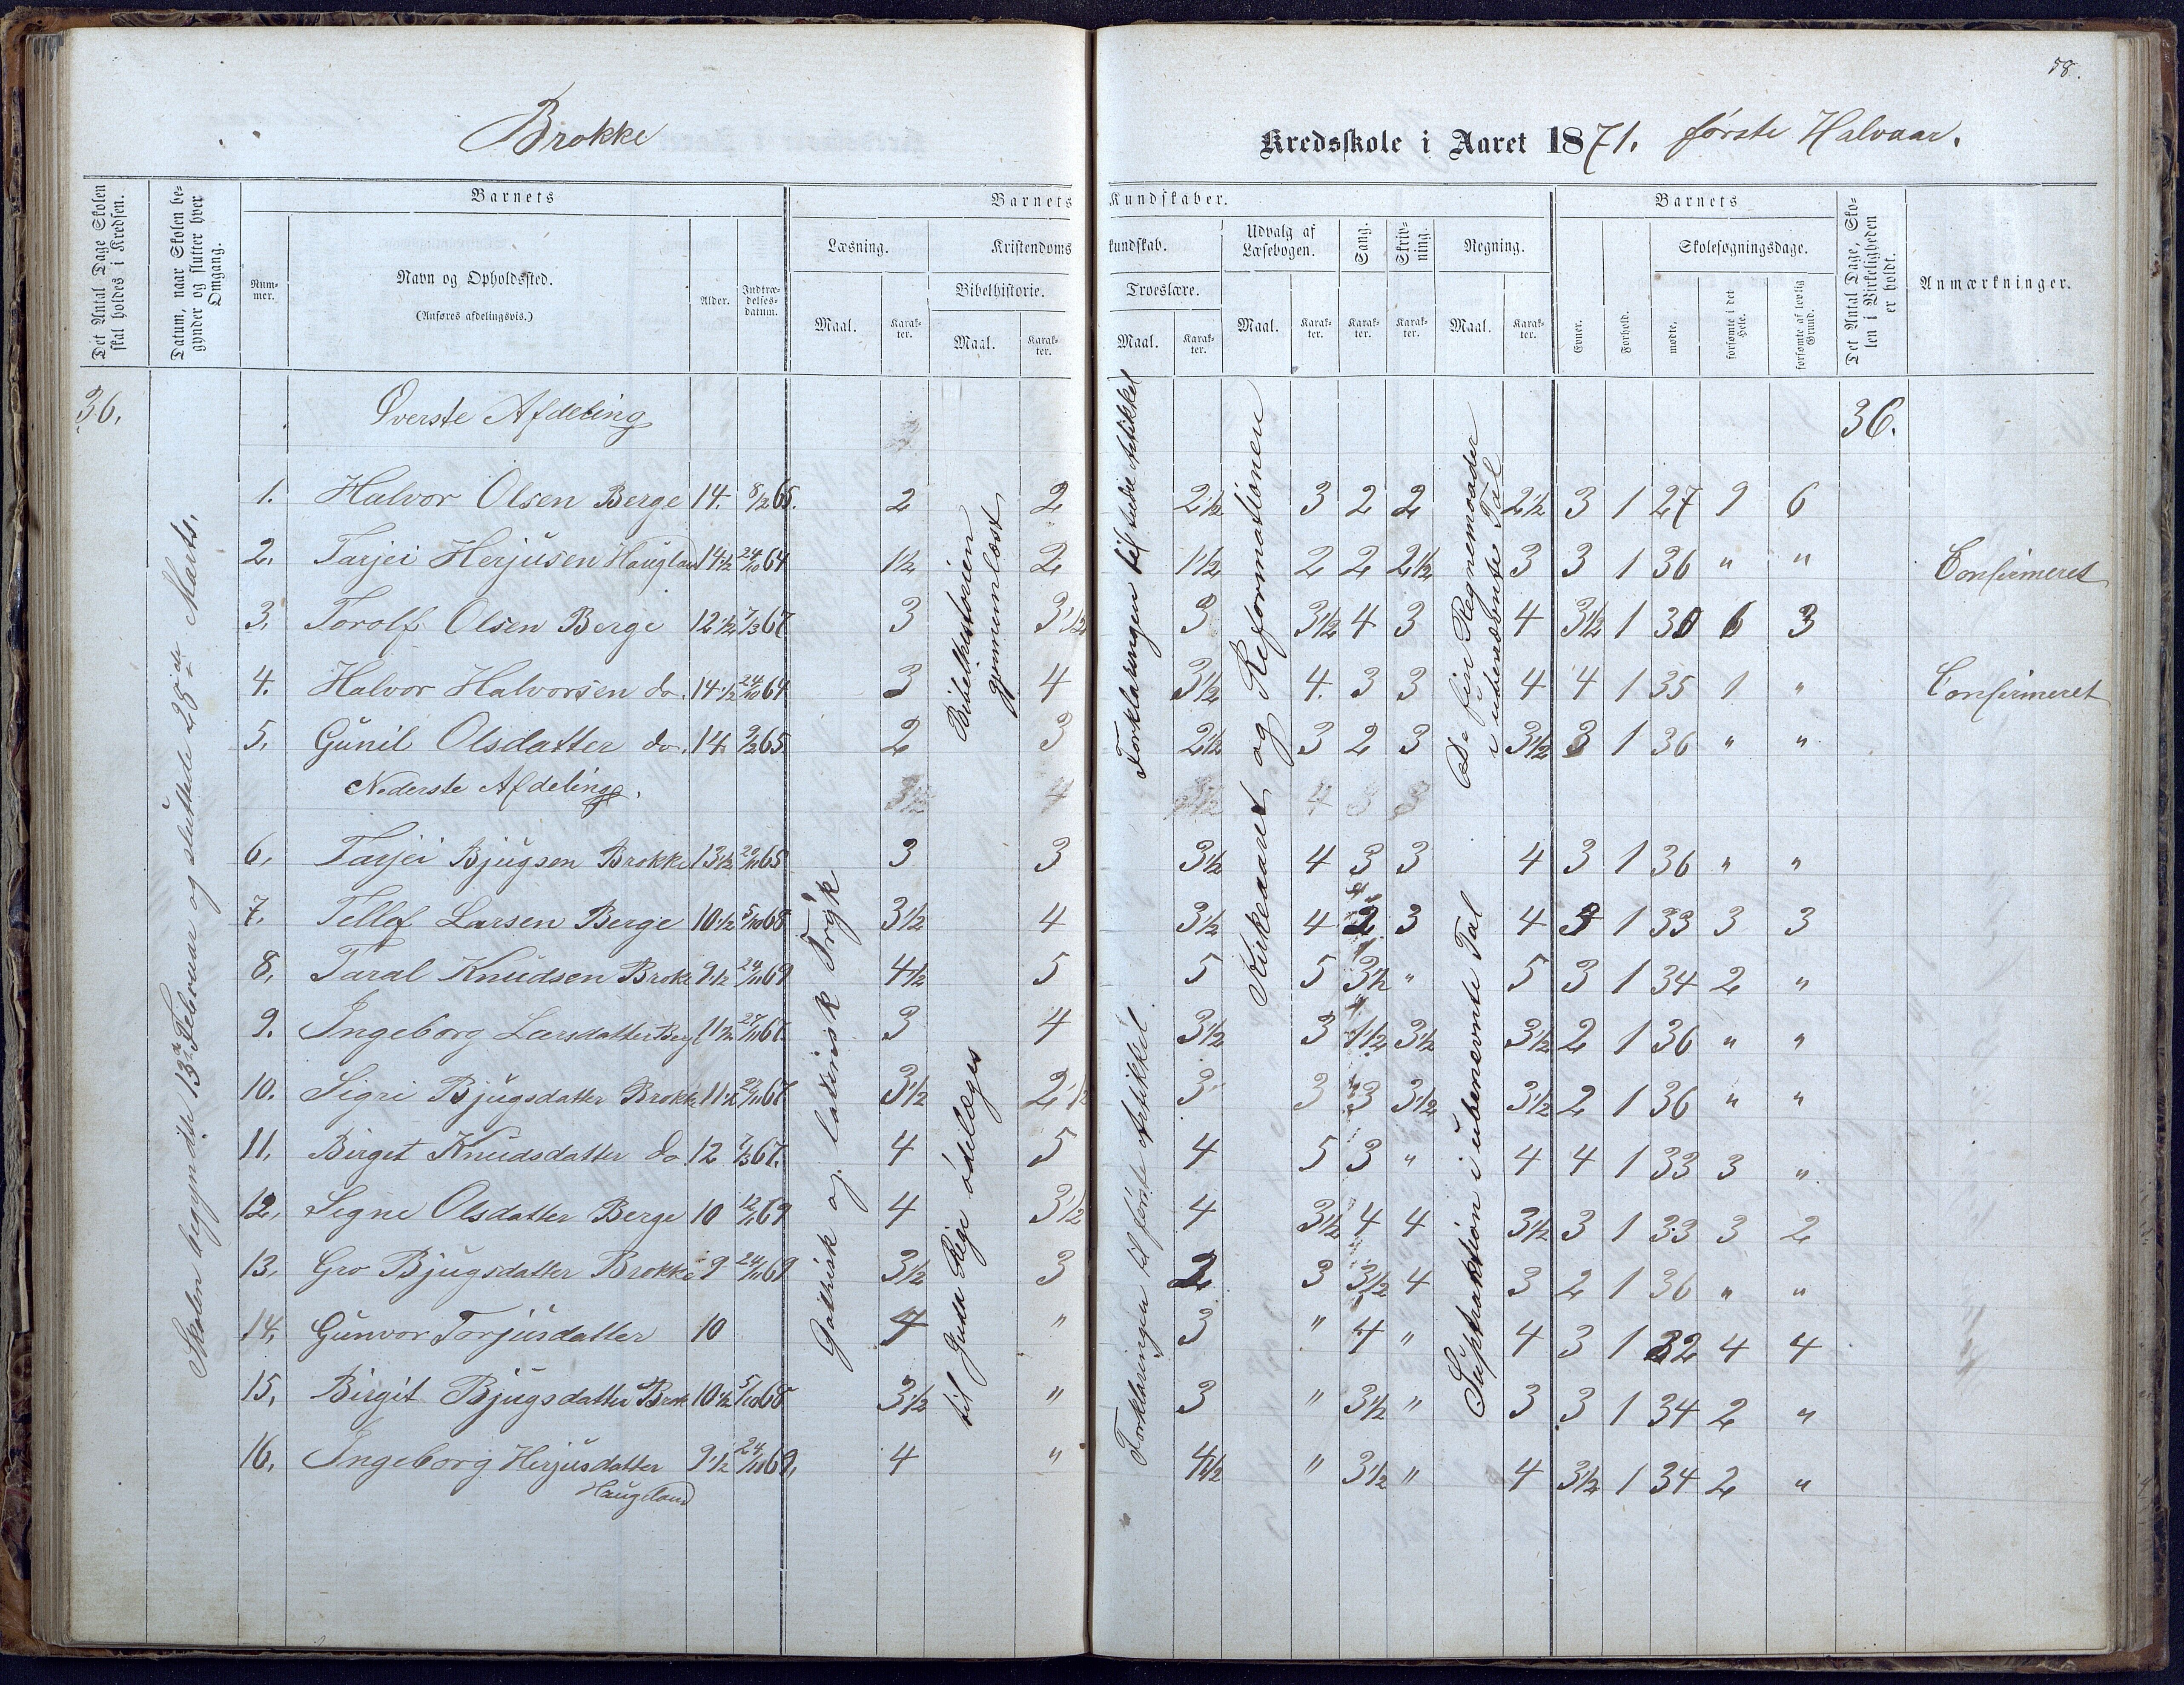 58.
Brokke
Kredsskole i Aaret 1871. første Halvaar.
Det Antal Dage Skolen skal holdes i Kredsen.
Datum, naar Skolen begynder og slutter hver Omgang.
Barnets
Nummer.
Navn og Opholdssted.
(Anføres afdelingsvis.)
Alder.
Indtrædelsesdatum.
Barnets Kundskaber.
Læsning.
Maal.
Karakter.
Kristendomskundskab.
Bibelhistorie.
Maal.
Karakter.
Troeslære.
Maal.
Karakter.
Udvalg af Læsebogen.
Maal.
Karakter.
Sang.
Karakter.
Skrivning.
Karakter.
Regning.
Maal.
Karakter.
Barnets
Evner.
Forhold.
Skolesøgningsdage.
mødte,
forsømte i det Hele.
forsømte af lovlig Grund.
Det Antal Dage, Skolen i Virkeligheden er holdt.
Anmærkninger.
36. Øverste Afdeling 36.
1. Halvor Olsen Berge 14. 8/2 65. 2 2 2½ 3 2 2 2½ 3 1 27 9 6
2. Tarjei Herjusen Haugland 14½ 24/10 64 1½ 2 1½ 2 2 2½ 3 3 1 36 " " Confirmeret
3. Torolf Olsen Berge 12½ 7/3 67 3 3½ 3 3½ 4 3 4 3½ 1 30 6 3
4. Halvor Halvorsen do. 14½ 24/10 64 3 4 3½ 4. 3 3 4 4 1 35 1 " Confirmeret
5. Gunil Olsdatter do. 14 9/2 65 2 3 2½ 3 2 3 3½ 3 1 36 " "
Nederste Afdeling.
6. Tarjei Bjugsen Brokke 13½ 3 3 3½ 4 3 3 4 3 1 36 " "
7. Tellef Larsen Berge 10½ 5/10 68 3½ 4 3½ 4 2 3 4 1 33 3 3
8. Taral Knudsen Brok 9½ 24/11 69 4½ 5 5 5 3½ " 5 3 1 34 2 "
9. Ingeborg Larsdatter Berg 11½ 67. 3 4 3½ 3 1½ 3½ 3½ 2 1 36 " "
10. Sigri Bjugsdatter Brokk 11½ 67 3½ 2½ 3 3 3 3½ 3½ 2 1 36 " "
11. Birget Knudsdatter do 12 7/3 67. 4 5 4 5 3 " 4 4 1 33 3 "
12. Signe Olsdatter Berge 10 69 4 3½ 4 3½ 4 4 3½ 3 1 33 3 2
13. Gro Bjugsdatter Brokke 9 24/11 69 3½ 3 2 3 3½ 4 3 2 1 36 " "
14. Gunvor Torjusdatter 10 4 " 3 " 4 " 4 3 1 32 4 4
15. Birgit Bjugsdatter Brok 10½ 5/10 68 3½ " 3 " 3½ " 3 3 1 34 2 "
16. Ingeborg Herjusdatter 9½ 24/10 69. 4 " 4½ " 3½ " 4 3½ 1 34 2 "
Haugland
Skolen begyndte 13de Februar og sluttede 28de Marts.
Gothisk og latinisk Tryk
Bibelhistorien gjennemlæst
til Juda Rige ødelægges
Forklaringen til tredie Artikkel
Forklaringen til første Artikkel
Kirkeaaret og Reformationen
De fire Regnemaader i ubenævnte Tal
Suptraktion i ubenevnte Tal